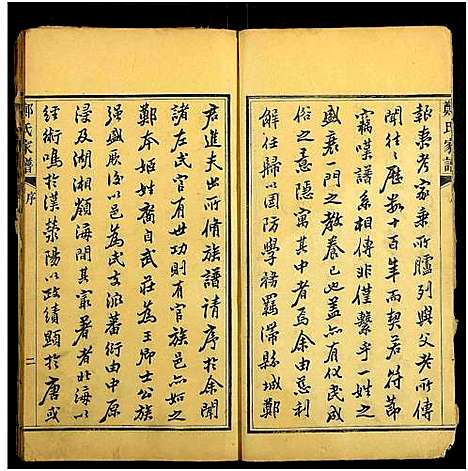 鄭氏家譜
報柬考家乘所臚列與父老所傳
聞往往歷數十百年而契若符節
竊嘆譜系相傳非僅繫乎一姓之
盛衰一門之教養已也蓋亦有化民成
俗之意隱寓其中者焉余由惠利
解任歸以國防學務羈滯縣城鄭
君進夫出所脩族譜請序於余聞
諸左氏官有世功則有官族邑亦如之
鄭本姬姓裔自武莊為王卿士公族
強盛厥後以邑為氏支派蕃衍由中原
浸及湖湘嶺海間其最著者北海以
經術鳴於漢滎陽以政績顯於唐或
鄭氏家譜
序
二